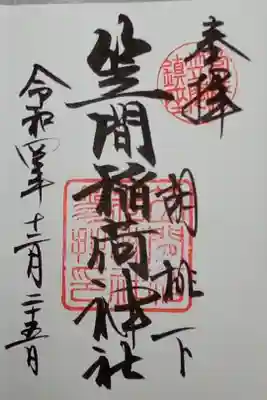 奉拝
胡桃下
笠間稲荷神社
令和四年十二月二十五日